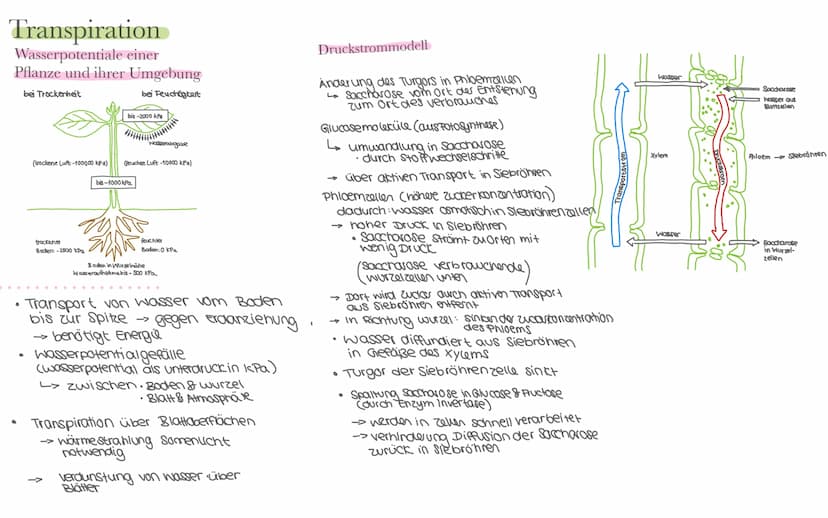 Transpiration
Wasserpotentiale einer
Pflanze und ihrer Umgebung
bei Trockenheit
bei Feuchtigkeit
bis -2000 kPa
Wasserabgabe
(trockene Luft -100000 kPa)
(feuchte Luft -10000 kPa)
bis -1000 kPa
trockener
Boden -2000 kPa
feuchter
Boden: 0 kPa
Boden in Wurzelnähe
Wasseraufnahme bis -500 kPa
• Transport von Wasser vom Boden
bis zur Spitze → gegen erdanziehung
→ benötigt Energie
• Wasserpotentialgefälle
(Wasserpotential als unterdruck in kPa)
↳ zwischen • Boden & Wurzel
• Blatt & Atmosphäre
• Transpiration über Blattoberflächen
→ wärmestrahlung Sonnenlicht
notwendig
→ Verdunstung von Wasser über
Blätter
Druckstrommodell
Änderung des Turgors in Phloemzellen
↳ Saccharose vom Ort der Entstehung
zum Ort des Verbrauches
Glucosemoleküle (aus Fotosynthese)
↳ umwandlung in Saccharose
• durch Stoffwechselschritte
→ über aktiven Transport in Siebröhren
Phloemzellen (höhere Zuckerkonzentration)
dadurch: Wasser osmotisch in Siebröhrenzellen
→ hoher Druck in Siebröhren
• Saccharose strömt zu Orten mit
wenig Druck
(Saccharose verbrauchende)
(wurzelzellen unten)
→ Dort wird Zucker durch aktiven Transport
aus Siebröhren entfernt
→ in Richtung wurzel: sinken der Zuckerkonzentration
des Phloems
• Wasser diffundiert aus Siebröhren
in Gefäße des Xylems
• Turgor der Siebröhrenzelle sinkt
• Spaltung Saccharose in Glucose & Fructose
(durch Enzym Invertase)
→ werden in Zellen schnell verarbeitet
→ verhinderung Diffusion der Saccharose
zurück in Siebröhren
Wasser
Saccharose
Wasser aus
Xylem
Phloem → Siebröhren
Transpirationsstrom
Wasser
Saccharose
in Wurzel-
zellen